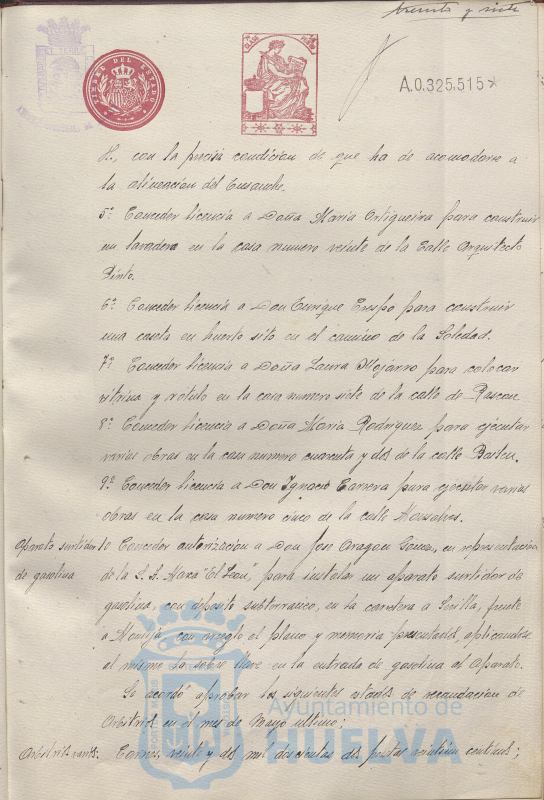 treinta y siete
TIMBRE DEL ESTADO
A.0.325.515*
H., con la precisa condicion de que ha de acomodarse a
la alineacion del Ensanche.
5º Conceder licencia a Doña Maria Ortigueira para construir
un lavadero en la casa numero veinte de la Calle Arquitecto
Pinto.
6º Conceder licencia a Don Enrique Crespo para construir
una caseta en huerto sito en el camino de la Soledad.
7º Conceder licencia a Doña Laura Mojarro para colocar
vitrina y rotulo en la casa numero siete de la calle de Rascon
8º Conceder licencia a Doña Maria Rodriguez para ejecutar
varias obras en la casa numero cuarenta y dos de la calle
9º Conceder licencia a Don Ignacio Carrera para ejecutar varias
obras en la casa numero cinco de la calle Monsalves.
Aparato surtidor
de gasolina
10 Conceder autorizacion a Don Jose Aragon Gomez, en representacion
de la S. S. Marca "El Leon", para instalar un aparato surtidor de
gasolina, con deposito subterraneo, en la carretera a Sevilla, frente
a con arreglo al plano y memoria presentados, aplicandose
al mismo la sobre llave en la entrada de gasolina al Aparato.
Se acordó aprobar los siguientes estados de recaudacion de
Arbitrios en el mes de Mayo ultimo:
Arbitrios varios.
Carnes, veinte y dos mil doscientas dos pesetas veintiun centimos;
Ayuntamiento de
HUELVA